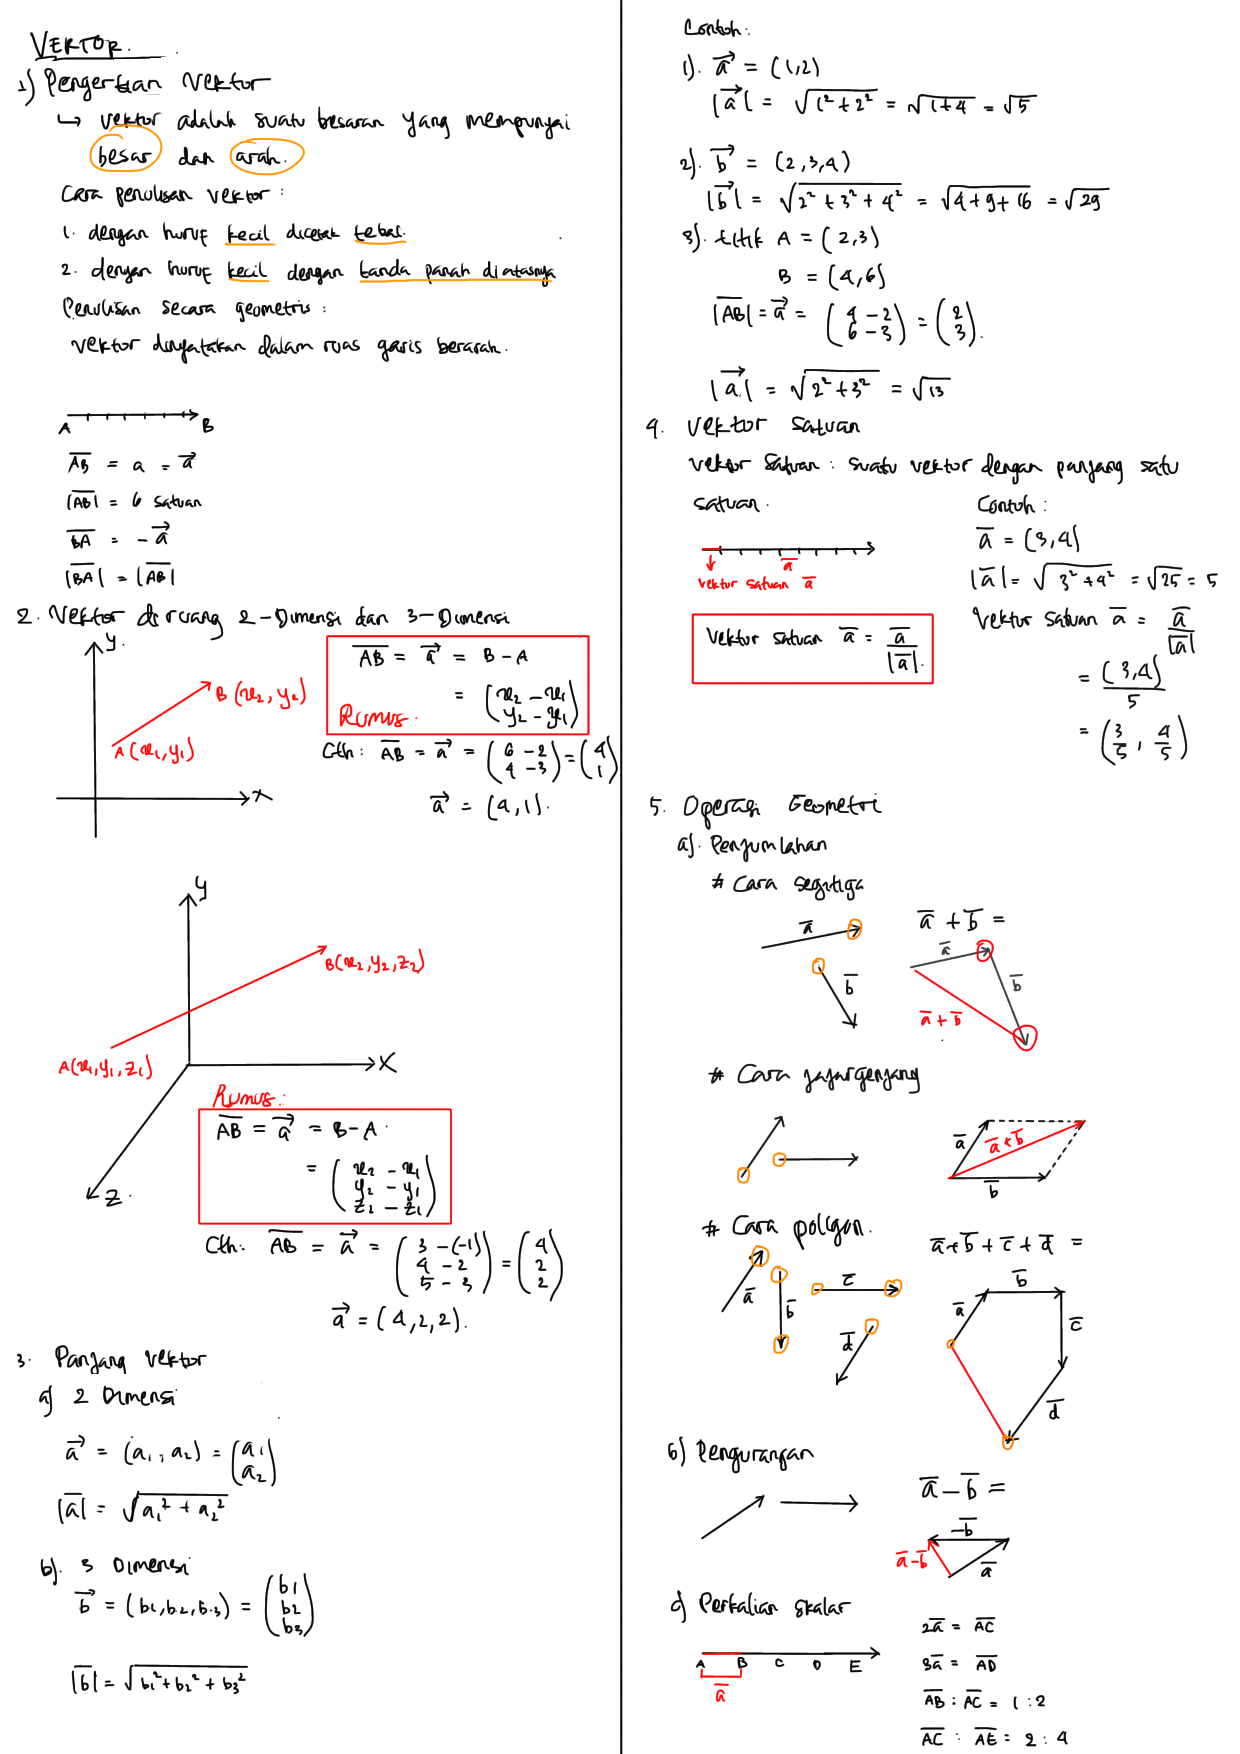 VEKTOR.
1) Pengertian Vektor
↳ vektor adalah suatu besaran yang mempunyai
besar dan arah.
Cara penulisan vektor :
1. dengan huruf kecil dicetak tebal.
2. dengan huruf kecil dengan tanda panah diatasnya
Penulisan secara geometris :
vektor dinyatakan dalam ruas garis berarah.
A B
A̅B̅ = a = a⃗
|A̅B̅| = 6 satuan
B̅A̅ = - a⃗
|B̅A̅| = |A̅B̅|
2. Vektor di ruang 2-Dimensi dan 3-Dimensi
y.
B (x₂, y₂)
A (x₁, y₁)
x
A̅B̅ = a⃗ = B - A
= (x₂ - x₁
y₂ - y₁)
Rumus.
Cth : A̅B̅ = a⃗ = (6 - 2
4 - 3) = (4
1)
a⃗ = (4, 1).
y
B(x₂, y₂, z₂)
A(x₁, y₁, z₁)
x
z.
Rumus :
A̅B̅ = a⃗ = B - A.
= (x₂ - x₁
y₂ - y₁
z₂ - z₁)
Cth: A̅B̅ = a⃗ = (3 - (-1)
4 - 2
5 - 3) = (4
2
2)
a⃗ = (4, 2, 2).
3. Panjang Vektor
a) 2 Dimensi
a⃗ = (a₁, a₂) = (a₁
a₂)
|a̅| = √a₁² + a₂²
b). 3 Dimensi
b⃗ = (b₁, b₂, b₃) = (b1
b2
b3)
|b̅| = √b₁² + b₂² + b₃²
Contoh :
1). a⃗ = (1,2)
|a⃗| = √1² + 2² = √1+4 = √5
2). b⃗ = (2,3,4)
|b⃗| = √2² + 3² + 4² = √4+9+16 = √29
3). titik A = (2,3)
B = (4,6)
|A̅B̅| = a⃗ = (4 - 2
6 - 3) = (2
3).
|a⃗| = √2² + 3² = √13
4. Vektor Satuan
vektor satuan : suatu vektor dengan panjang satu
satuan.
a̅
vektor satuan a̅
Vektor satuan a̅ = a̅ / |a̅|.
Contoh :
a̅ = (3,4)
|a̅| = √3² + 4² = √25 = 5
Vektor satuan a̅ = a̅ / |a̅|
= (3,4) / 5
= (3/5, 4/5)
5. Operasi Geometri
a). Penjumlahan
# Cara segitiga
a̅ b̅
a̅ + b̅ =
a̅ b̅
a̅ + b̅
# Cara jajargenjang
a̅ a̅ + b̅
b̅
# Cara poligon.
a̅ b̅ c̅ d̅
a̅ + b̅ + c̅ + d̅ =
a̅ b̅ c̅ d̅
b) Pengurangan
a̅ - b̅ =
-b̅
a̅ - b̅ a̅
c) Perkalian skalar
A B C D E
a̅
2a̅ = A̅C̅
3a̅ = A̅D̅
A̅B̅ : A̅C̅ = 1 : 2
A̅C̅ : A̅E̅ = 2 : 4